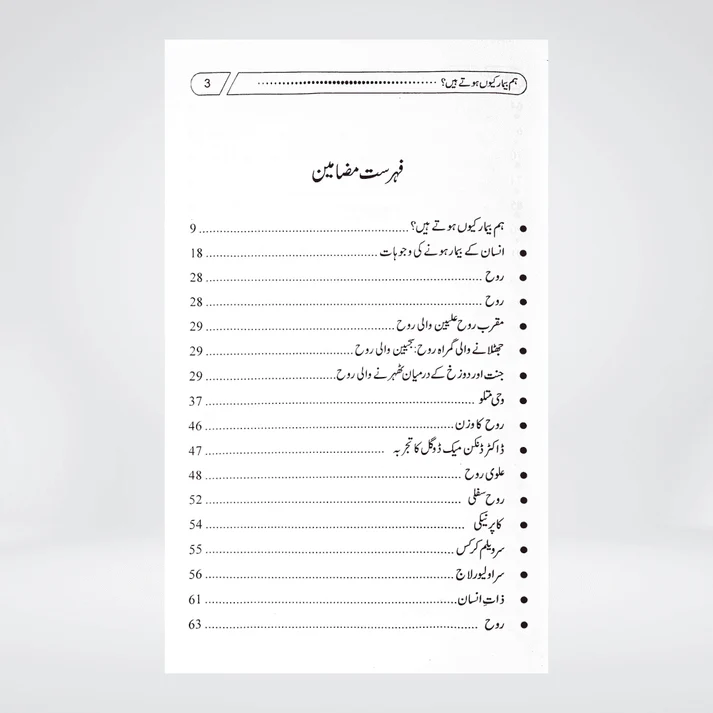 ہم بیمار کیوں ہوتے ہیں؟ 3
فہرست مضامین
● ہم بیمار کیوں ہوتے ہیں؟ 9
● انسان کے بیمار ہونے کی وجوہات 18
● روح 28
● روح 28
● مقرب روح علیین والی روح 29
● جھٹلانے والی گمراہ روح، سجیین والی روح 29
● جنت اور دوزخ کے درمیان ٹھہرنے والی روح 29
● وحی متلو 37
● روح کا وزن 46
● ڈاکٹر ڈنکن میک ڈوگل کا تجربہ 47
● علوی روح 48
● روح سفلی 52
● کاپرنیکی 54
● سر ولیم کرکس 55
● سر اولیور لاج 56
● ذاتِ انسان 61
● روح 63